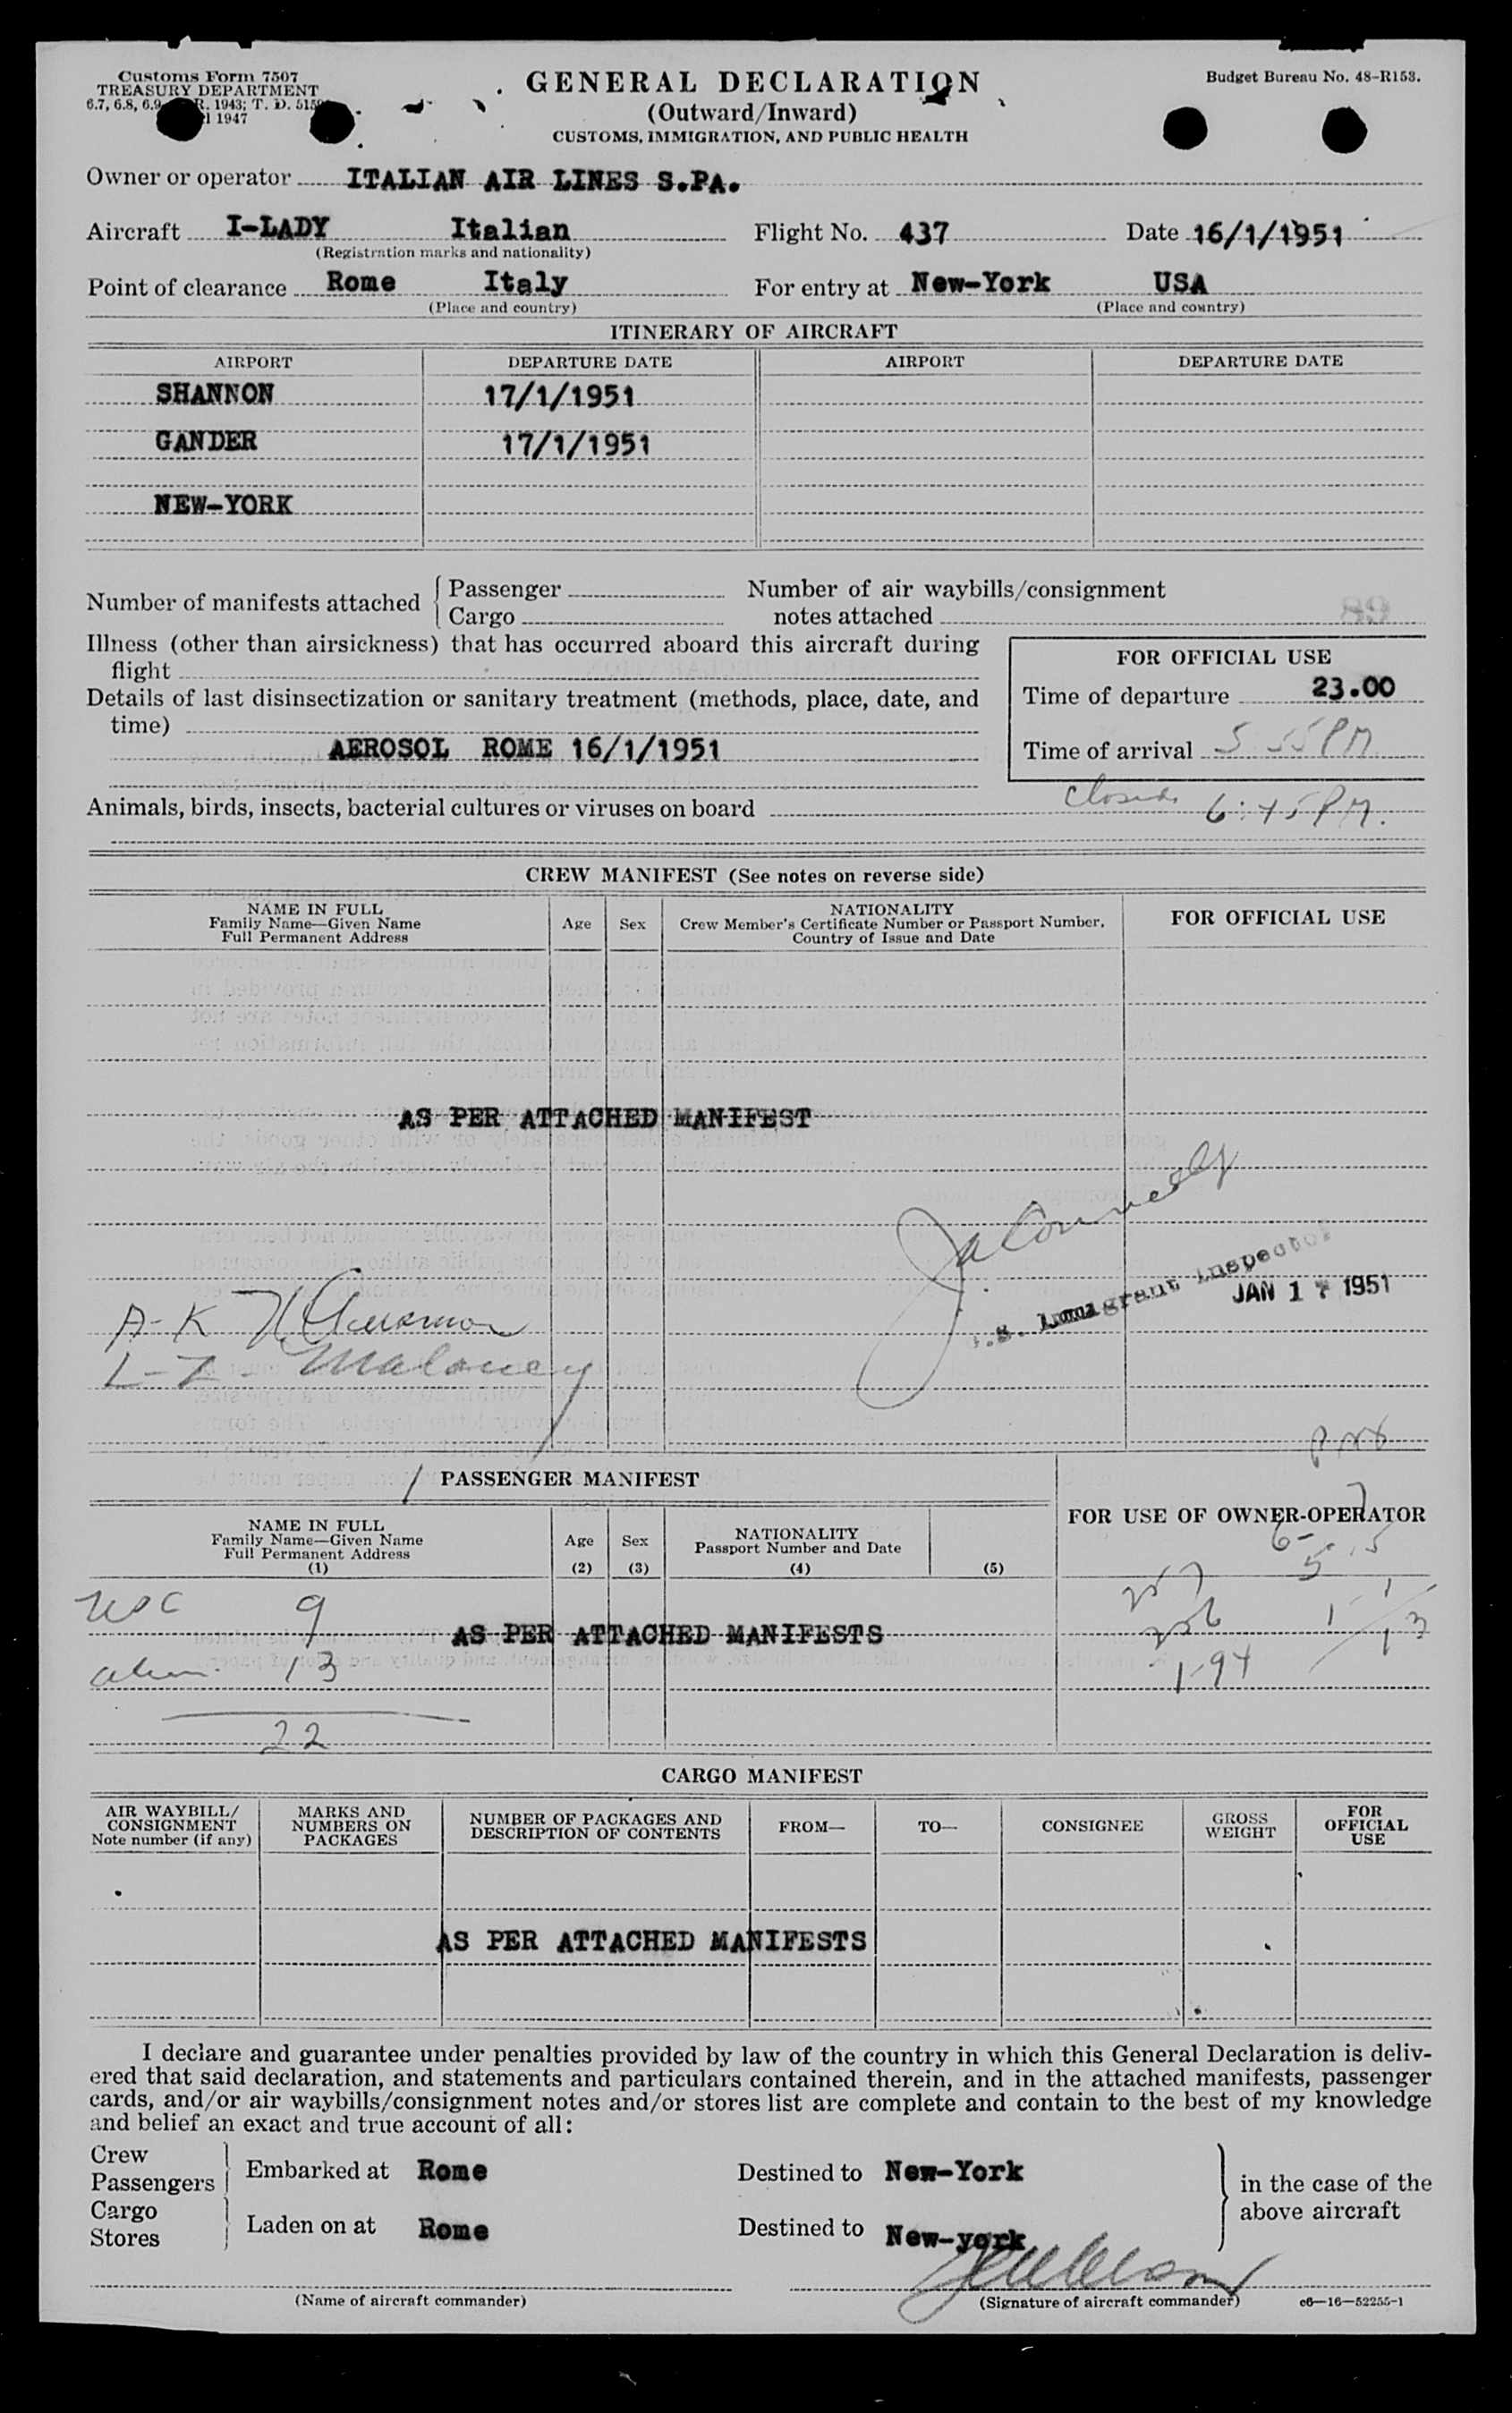 Customs Form 7507
TREASURY DEPARTMENT
6.7, 6.8, 6.9, R. 1943; T. D.
1947
GENERAL DECLARATION
(Outward/Inward)
CUSTOMS, IMMIGRATION, AND PUBLIC HEALTH
Budget Bureau No. 48-R153.
Owner or operator ITALIAN AIR LINES S.PA.
Aircraft I-LADY Italian Flight No. 437 Date 16/1/1951
(Registration marks and nationality)
Point of clearance Rome Italy For entry at New-York USA
(Place and country) (Place and country)
ITINERARY OF AIRCRAFT
AIRPORT DEPARTURE DATE AIRPORT DEPARTURE DATE
SHANNON 17/1/1951
GANDER 17/1/1951
NEW-YORK
Number of manifests attached { Passenger
Cargo
Number of air waybills/consignment
notes attached
Illness (other than airsickness) that has occurred aboard this aircraft during
flight
Details of last disinsectization or sanitary treatment (methods, place, date, and
time)
AEROSOL ROME 16/1/1951
FOR OFFICIAL USE
Time of departure 23.00
Time of arrival 5 55 PM
closed 6:45 PM.
Animals, birds, insects, bacterial cultures or viruses on board
CREW MANIFEST (See notes on reverse side)
NAME IN FULL
Family Name—Given Name
Full Permanent Address
Age
Sex
NATIONALITY
Crew Member's Certificate Number or Passport Number,
Country of Issue and Date
FOR OFFICIAL USE
AS PER ATTACHED MANIFEST
Immigrant Inspector
JAN 17 1951
A-K
L-Z - Maloney
PASSENGER MANIFEST
FOR USE OF OWNER-OPERATOR
NAME IN FULL
Family Name—Given Name
Full Permanent Address
(1)
Age
(2)
Sex
(3)
NATIONALITY
Passport Number and Date
(4)
(5)
USC 9
AS PER ATTACHED MANIFESTS
alien 13
22
1-94
CARGO MANIFEST
AIR WAYBILL/
CONSIGNMENT
Note number (if any)
MARKS AND
NUMBERS ON
PACKAGES
NUMBER OF PACKAGES AND
DESCRIPTION OF CONTENTS
FROM—
TO—
CONSIGNEE
GROSS
WEIGHT
FOR
OFFICIAL
USE
AS PER ATTACHED MANIFESTS
I declare and guarantee under penalties provided by law of the country in which this General Declaration is deliv-
ered that said declaration, and statements and particulars contained therein, and in the attached manifests, passenger
cards, and/or air waybills/consignment notes and/or stores list are complete and contain to the best of my knowledge
and belief an exact and true account of all:
Crew
Passengers } Embarked at Rome Destined to New-York
Cargo
Stores } Laden on at Rome Destined to New-york
in the case of the
above aircraft
(Name of aircraft commander) (Signature of aircraft commander) c6—16—52255-1